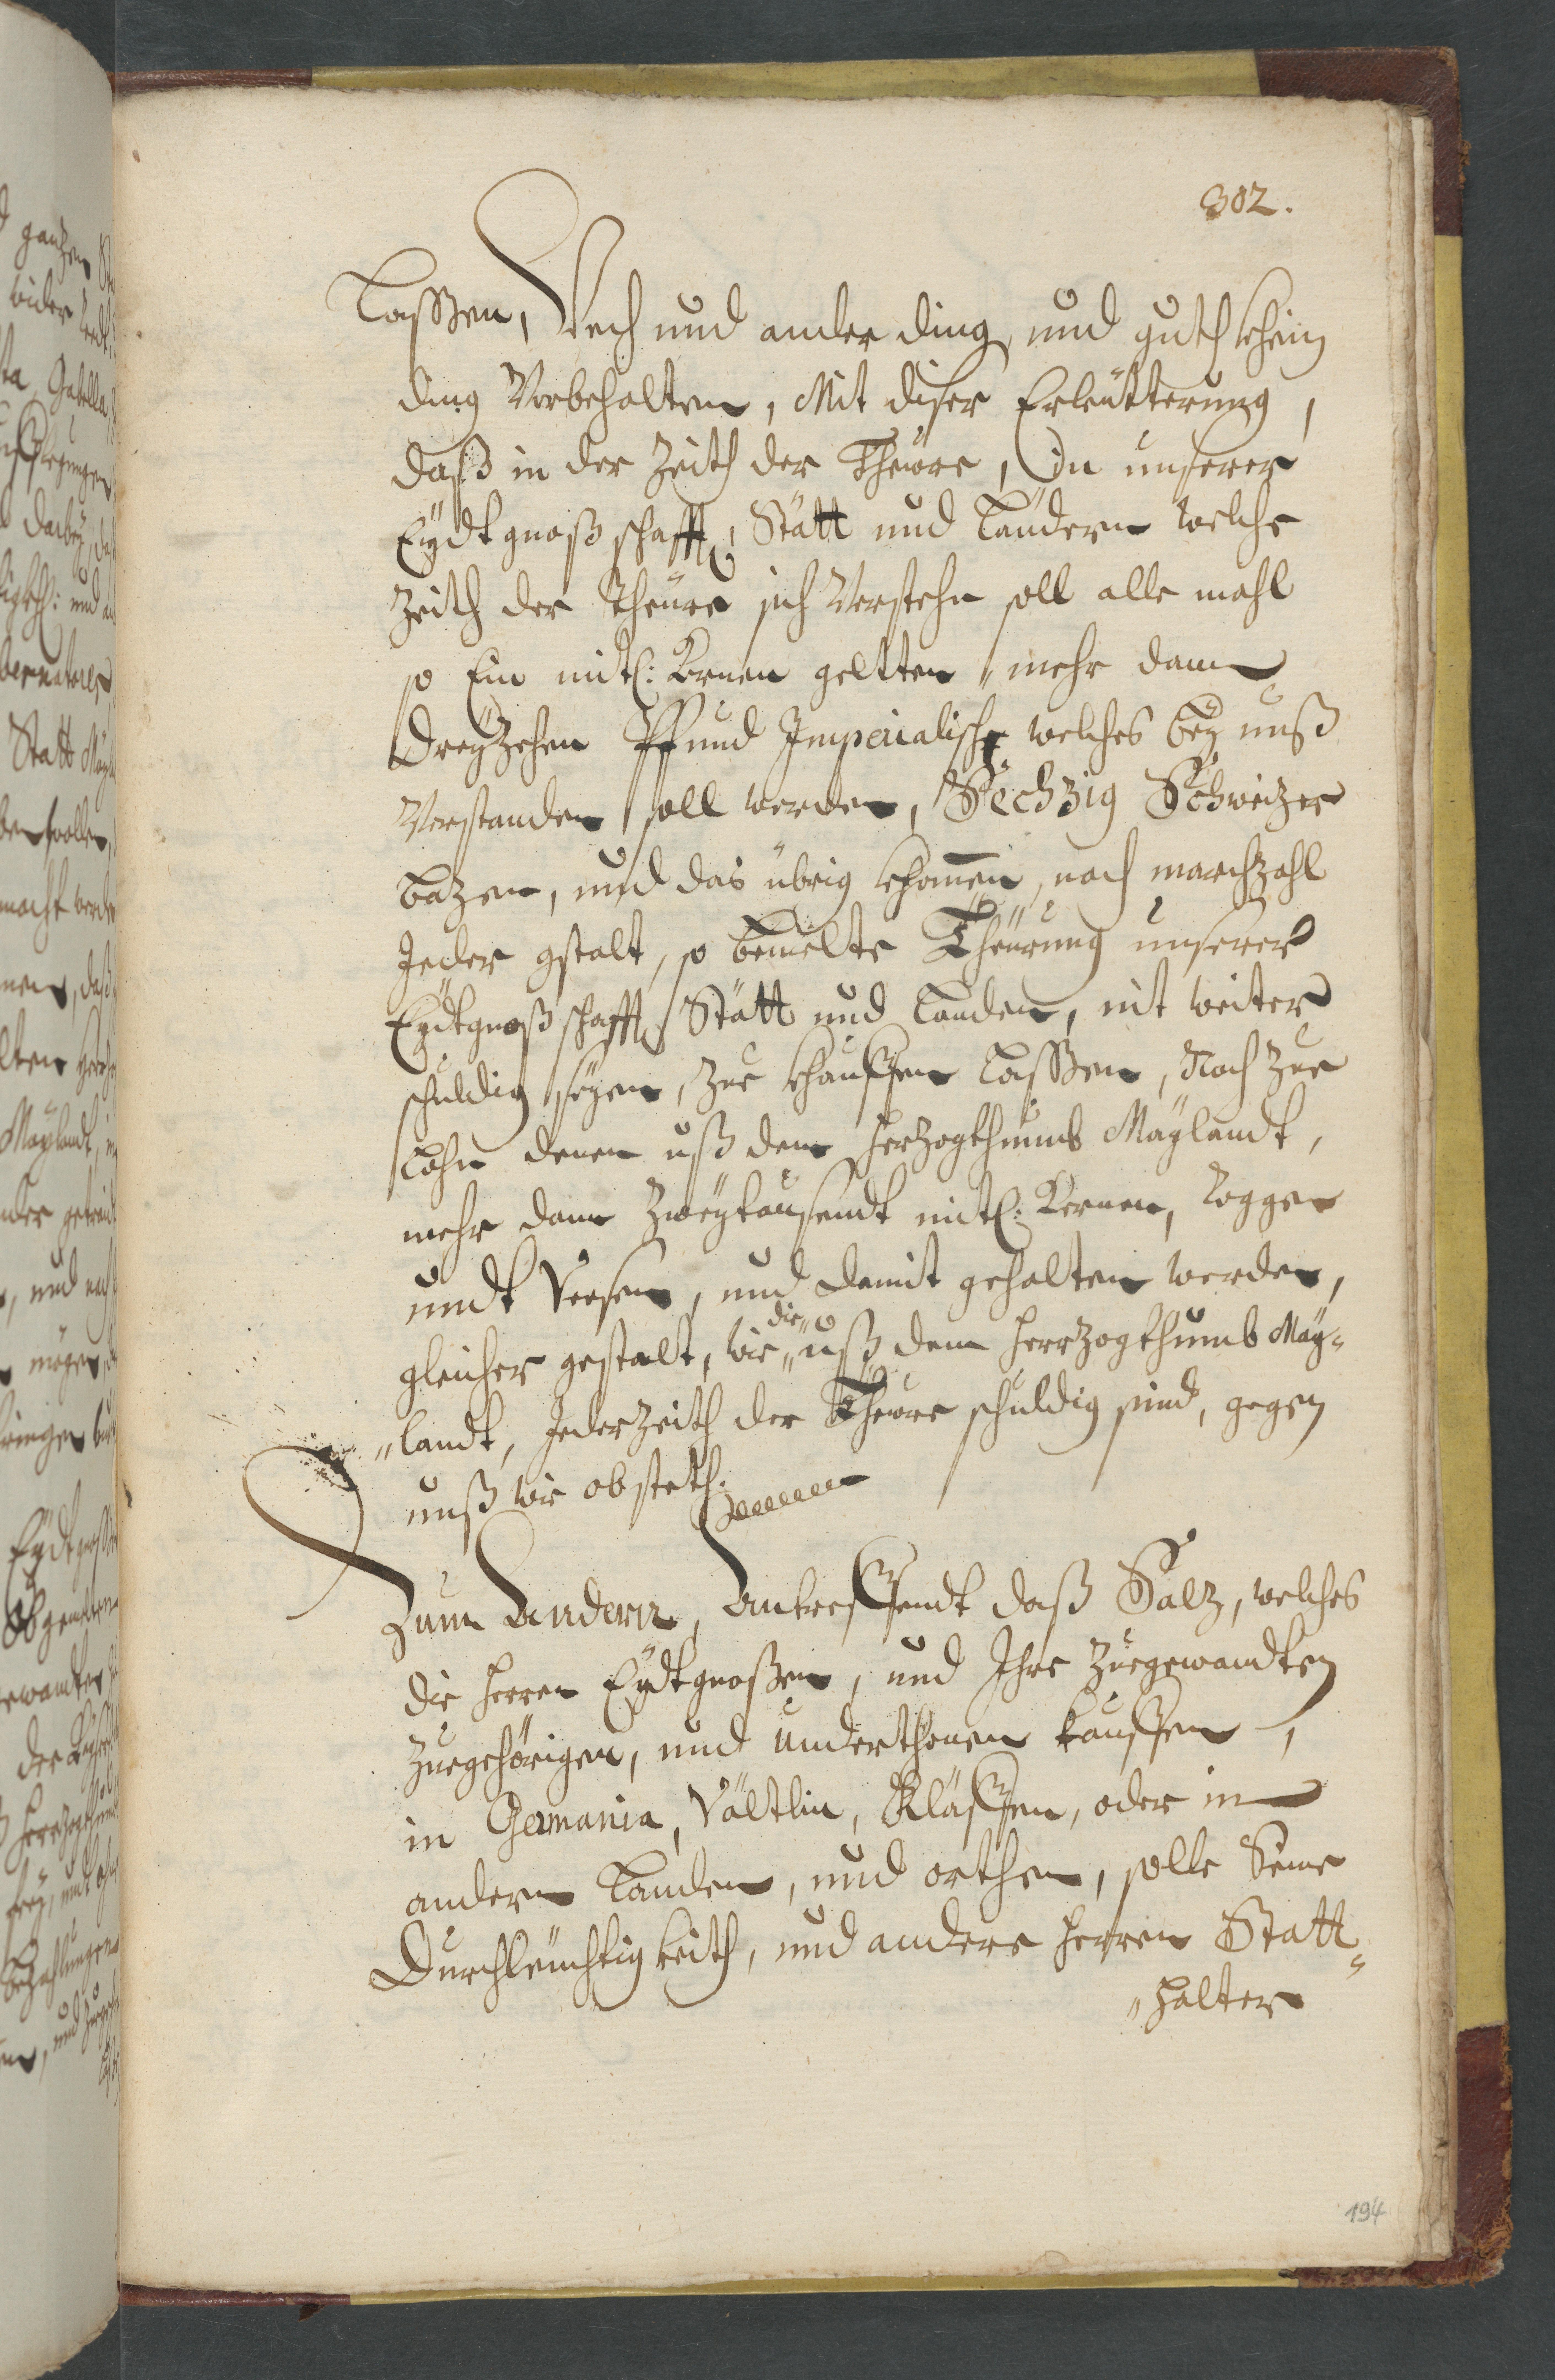 302.
Lassen, Vech und ander ding, und guth khein
ding Vorbehalten, Mit diser Erleütterung,
daß in der Zeith der Theüre, In unserer
Eydtgnoßschafft, Stätt und Ländern welche
Zeith der Theüre sich Verstehn soll alle mahl
so Ein mütl: Kernen geltten mehr dann
dreyzehen Pfund Imperialische welches bey unß
Verstanden soll werden, Sechzig Schweizer
Bazen, und das übrig khornen, nach marchzahl
Jeder gstalt, so bemelte Theürung unserer
Eydtgnoßschafft Stätt und Landen, nit weiter
schuldig seyen, zue khauffen Lassen, Noch zue
Lohn denen uß dem Herzogthumb Mäylandt,
mehr dann Zweytausendt mütl: Kernen, Roggen
undt Veesen, und damit gehalten werden,
gleicher gestalt, wie die uß dem Herrzogthumb Mäy=
"landt, Jederzeith der Theüre schuldig sind, gegen
unß wie obsteth.
Zum Andern, Antreffendt daß Salz, welches
die Herren Eydtgnoßen, und Ihre Zuegewandten
Zuegehörigen, und underthonen kauffen,
in Germania, Vältlin, Kläffen, oder in
andern Landen, und orthen, solle Seine
Durchleüchtigkeith, und andere Herren Statt=
"halter
194